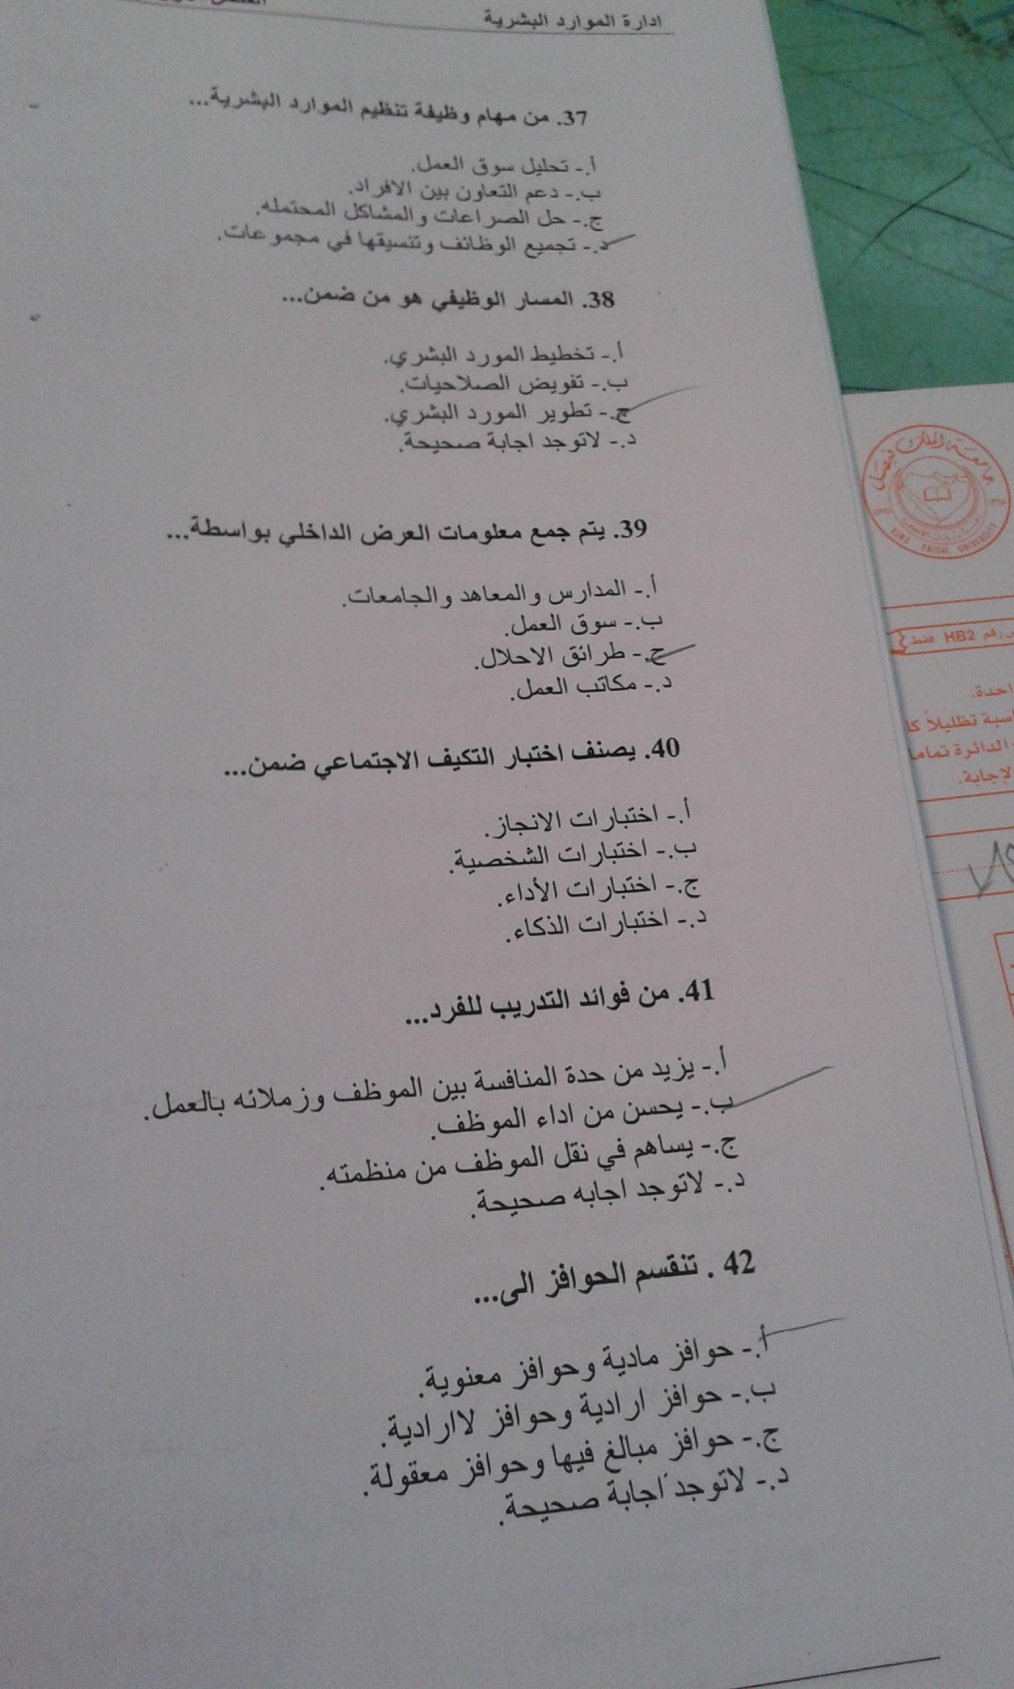 ادارة الموارد البشرية
37. من مهام وظيفة تنظيم الموارد البشرية...
أ.- تحليل سوق العمل.
ب.- دعم التعاون بين الافراد.
ج.- حل الصراعات والمشاكل المحتمله.
د.- تجميع الوظائف وتنسيقها في مجموعات.
38. المسار الوظيفي هو من ضمن...
أ.- تخطيط المورد البشري.
ب.- تفويض الصلاحيات.
ج.- تطوير المورد البشري.
د.- لاتوجد اجابة صحيحة.
39. يتم جمع معلومات العرض الداخلي بواسطة...
أ.- المدارس والمعاهد والجامعات.
ب.- سوق العمل.
ج.- طرائق الاحلال.
د.- مكاتب العمل.
40. يصنف اختبار التكيف الاجتماعي ضمن...
أ.- اختبارات الانجاز.
ب.- اختبارات الشخصية.
ج.- اختبارات الأداء.
د.- اختبارات الذكاء.
41. من فوائد التدريب للفرد...
أ.- يزيد من حدة المنافسة بين الموظف وزملائه بالعمل.
ب.- يحسن من اداء الموظف.
ج.- يساهم في نقل الموظف من منظمته.
د.- لاتوجد اجابه صحيحة.
42 . تنقسم الحوافز الى...
أ.- حوافز مادية وحوافز معنوية.
ب.- حوافز ارادية وحوافز لاارادية.
ج.- حوافز مبالغ فيها وحوافز معقولة.
د.- لاتوجد اجابة صحيحة.
جامعة الملك فيصل
KING FAISAL UNIVERSITY
رقم HB2 فقط
احدة.
تظليلاً
الدائرة تماما